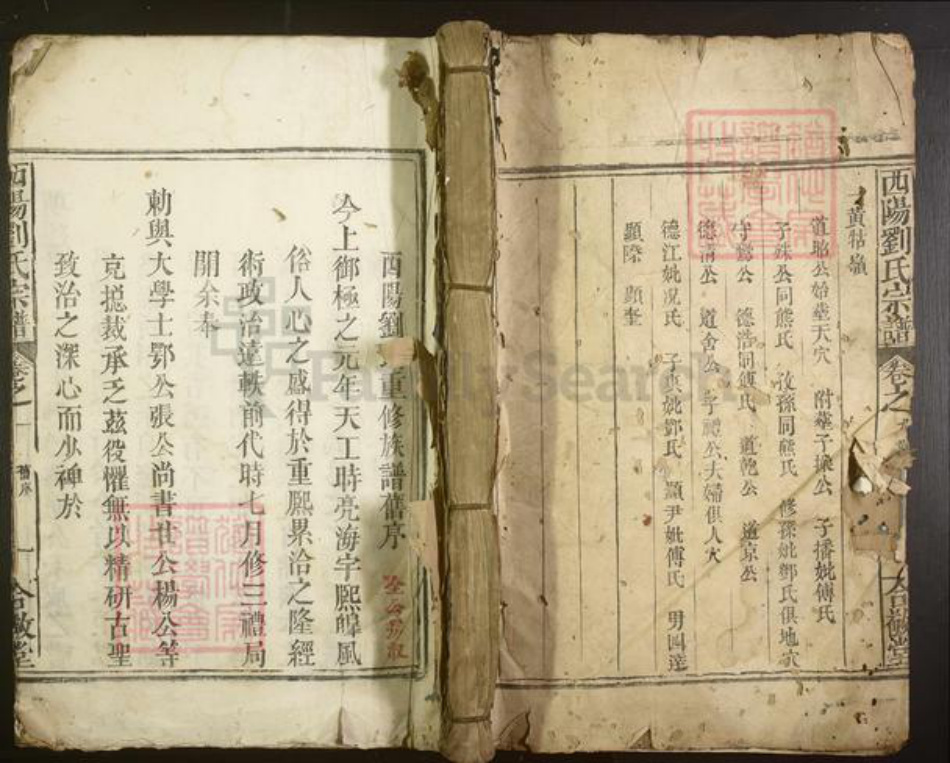 西陽劉氏宗譜 卷之
黃牯嶺
道昭公始塟天穴 附塟子操公 子播妣傅氏
子殊公同熊氏 孜孫同熊氏 修孫妣鄧氏俱地穴
子鸞公 德浩同傅氏 道乾公 道京公
德清公 道舍公 子禮公夫婦俱人穴
德江妣況氏 子奕妣鄧氏 顯尹妣傅氏 男四達
顯陞 顯奎
合敬堂
西陽劉氏重修族譜舊序
今上御極之元年天工時亮海宇熙皥風
俗人心之盛得於重熙累洽之隆經
術政治遠軼前代時七月修三禮局
開余奉
勅與大學士鄂公張公尚書世公楊公等
克摠裁承乏茲役懼無以精研古聖
致治之深心而少裨於
西陽劉氏宗譜 卷之一 舊序 一 合敬堂
FamilySearch